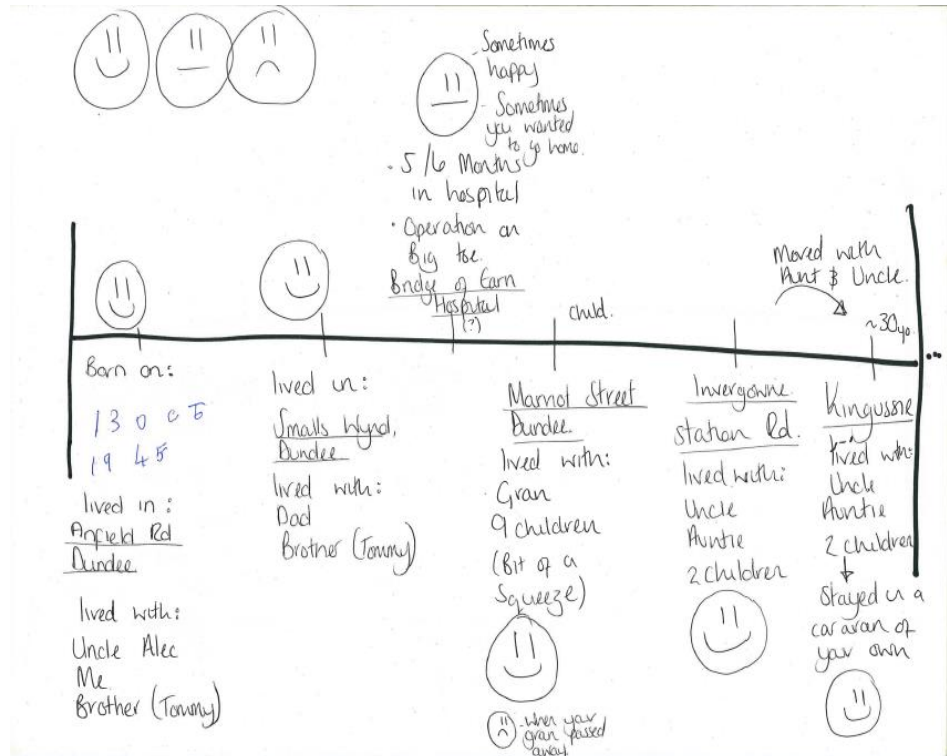 Sometimes
happy
- Sometimes
you wanted
to go home.
· 5/6 Months
in hospital
· Operation on
Big toe.
Bridge of Earn
Hospital
(?)
child.
Moved with
Aunt & Uncle.
~30yo
Born on:
13 0 c t
19 45
lived in:
Anfield Rd
Dundee
lived with:
Uncle Alec
Me
Brother (Tommy)
lived in:
Smalls Wynd,
Dundee
lived with:
Dad
Brother (Tommy)
Street
Dundee
lived with:
Gran
9 children
(Bit of a
Squeeze)
- when your
gran passed
away
Invergowrie
station Rd.
lived with:
Uncle
Auntie
2 children
Kingussie
lived with:
Uncle
Auntie
2 children
Stayed in a
caravan of
your own